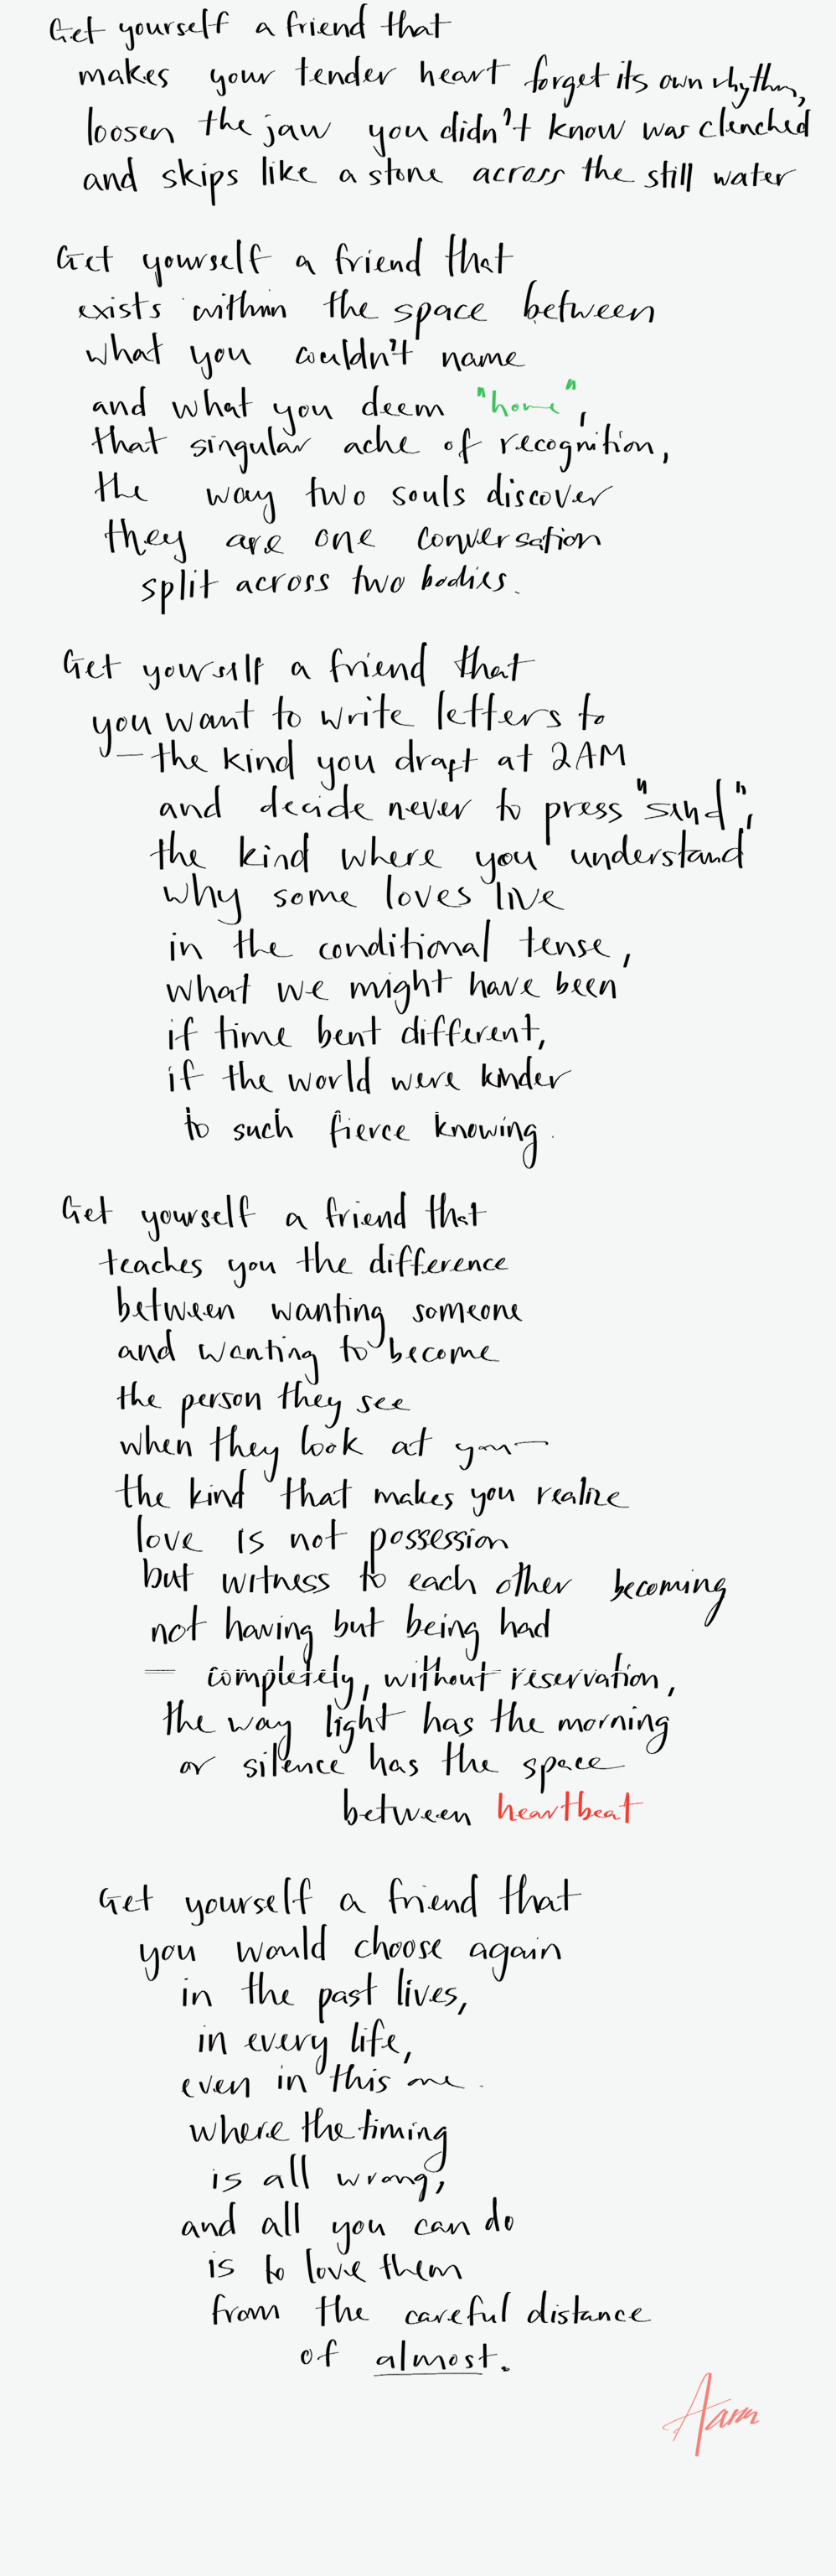 Get yourself a friend that
makes your tender heart forget its own rhythm,
loosen the jaw you didn't know was clenched
and skips like a stone across the still water
Get yourself a friend that
exists within the space between
what you couldn't name
and what you deem "home",
that singular ache of recognition,
the way two souls discover
they are one conversation
split across two bodies.
Get yourself a friend that
you want to write letters to
— the kind you draft at 2AM
and decide never to press "send",
the kind where you understand
why some loves live
in the conditional tense,
what we might have been
if time bent different,
if the world were kinder
to such fierce knowing.
Get yourself a friend that
teaches you the difference
between wanting someone
and wanting to become
the person they see
when they look at you —
the kind that makes you realize
love is not possession
but witness to each other becoming
not having but being had
— completely, without reservation,
the way light has the morning
or silence has the space
between heartbeat
Get yourself a friend that
you would choose again
in the past lives,
in every life,
even in this one.
where the timing
is all wrong,
and all you can do
is to love them
from the careful distance
of almost.